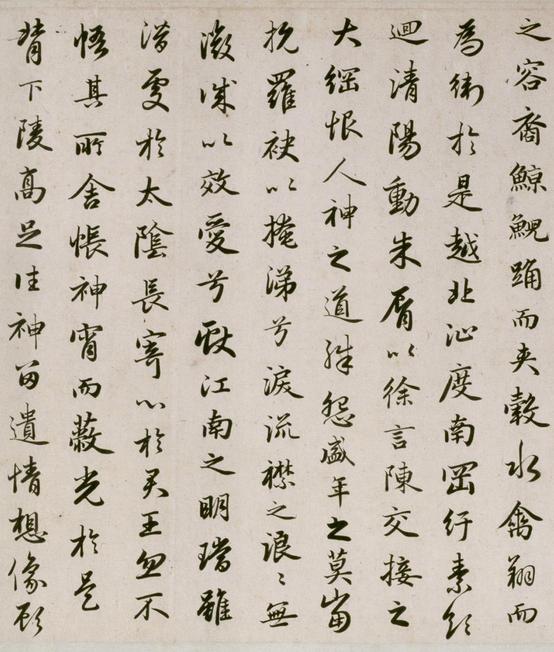 之容裔鯨鯢踊而夾轂水禽翔而
為衛於是越北沚度南岡紆素領
迴清陽動朱脣以徐言陳交接之
大綱恨人神之道殊怨盛年之莫當
抗羅袂以掩涕兮淚流襟之浪〻無
微誠以效愛兮獻江南之明璫雖
潛處於太陰長寄心於君王忽不
悟其所舍悵神宵而蔽光於是
背下陵高足往神留遺情想像顧